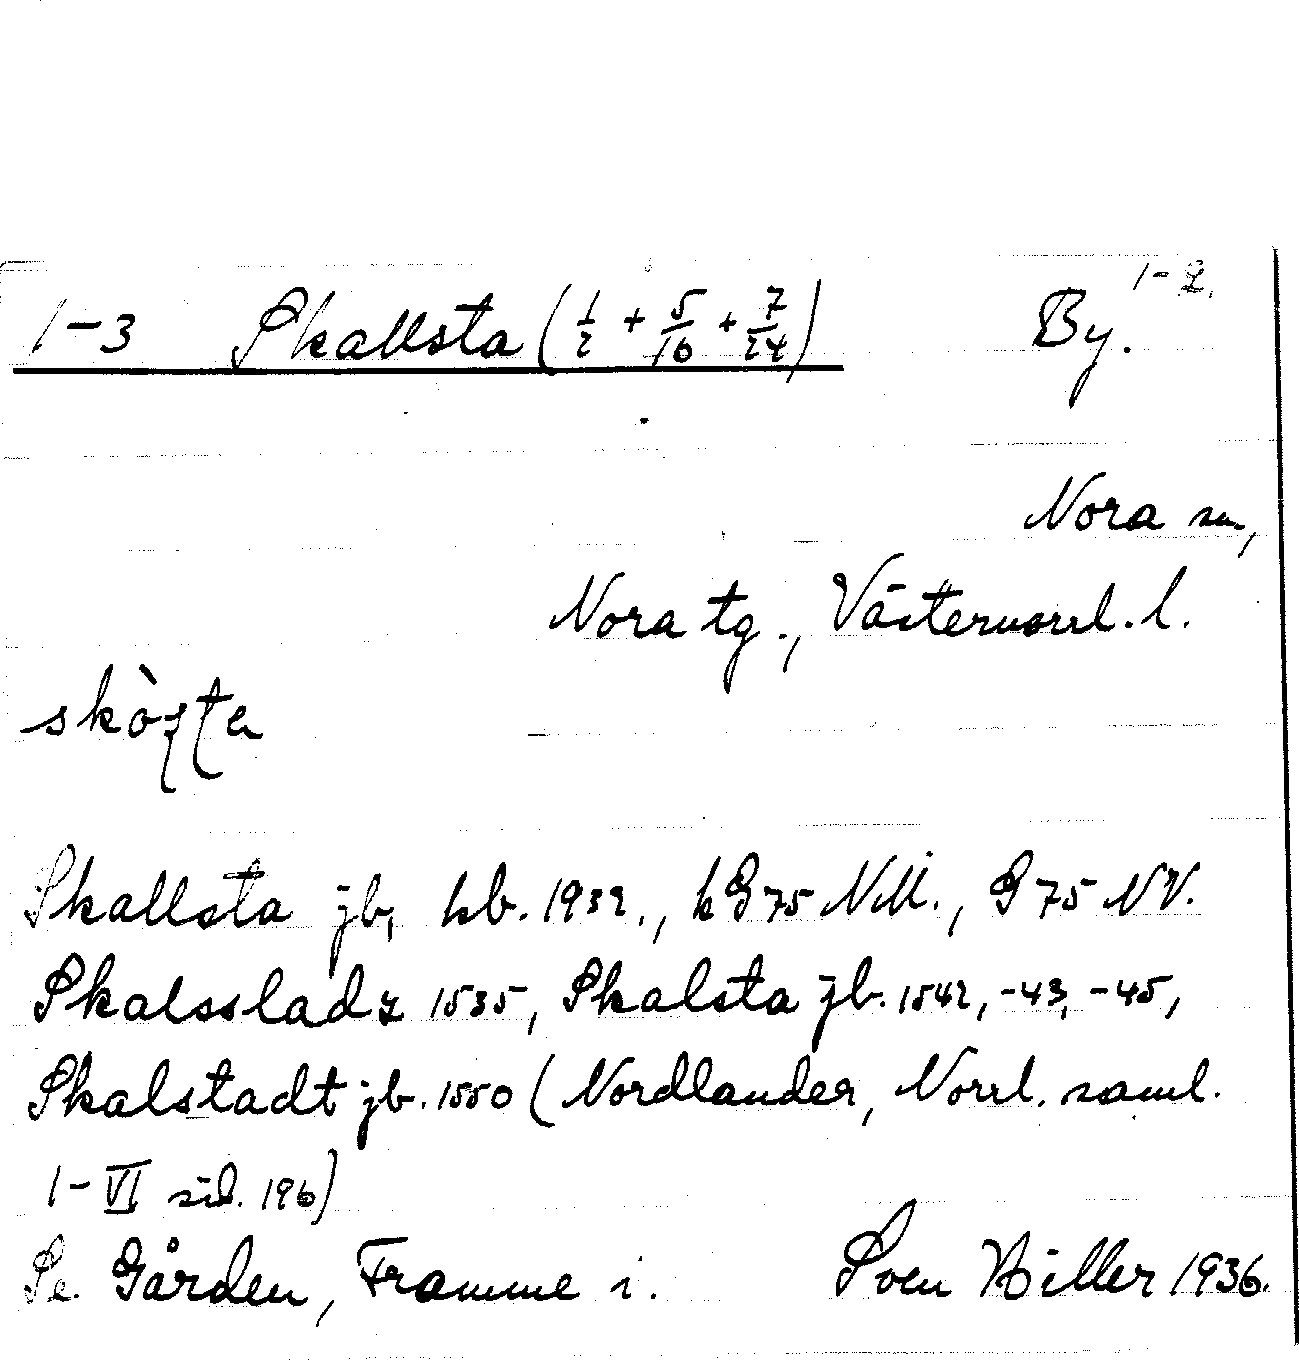 1-3 Skallsta (1/2 + 5/16 + 7/24) By. 1-2.
Nora sn,
Nora tg., Västernorrl. l.
Skallsta jb, hb. 1932., kG 75 NM., G 75 NV.
Skalsslady 1535, Skalsta jb. 1542, -43, -45,
Skalstadt jb. 1550 (Nordlander, Norrl. saml.
1-VI sid. 196)
Se. Gården, Framme i. Sven Hiller 1936.